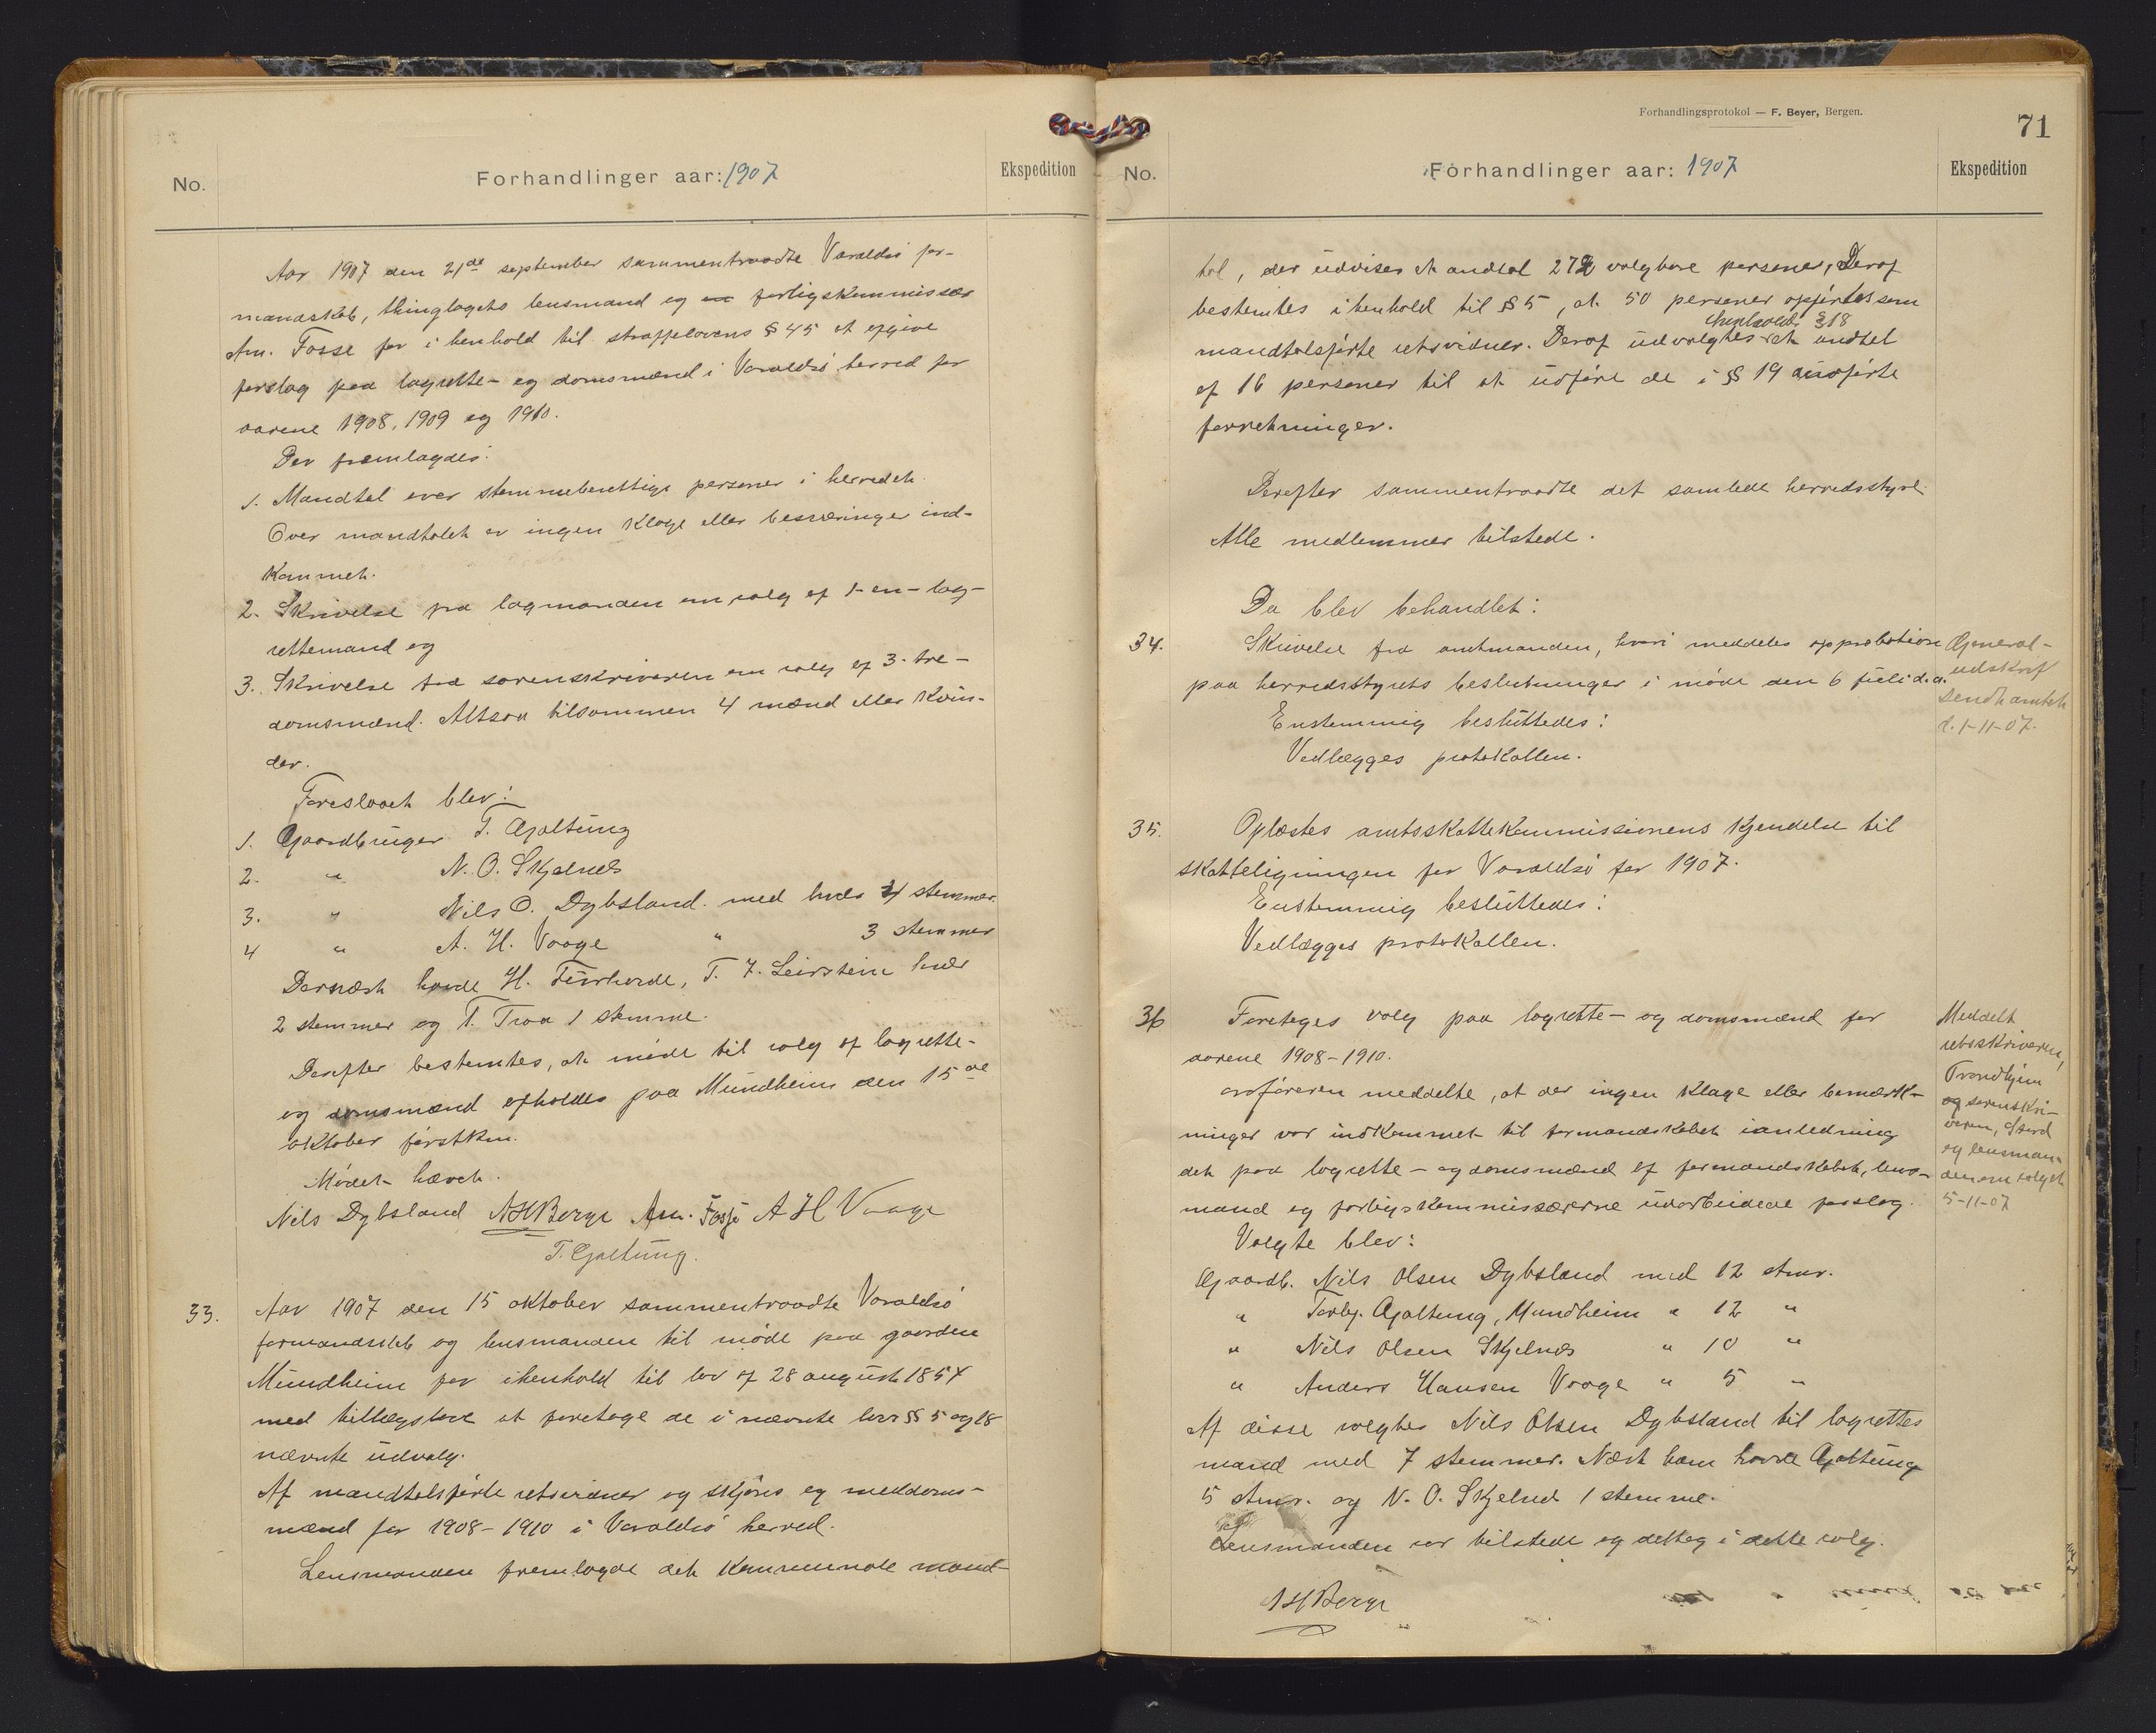 No.
Forhandlinger aar: 1907
Ekspedition
Aar 1907 den 21de september sammentraadte Varaldsö for-
mandskab, thinglagets lensmand og en forligskommissær
Am. Fosse for i henhold til straffelovens § 45 at opgive
forslag paa lagrette- og domsmænd i Varaldsö herred for
aarene 1908, 1909 og 1910.
Der fremlagdes:
1. Mandtal over stemmeberettige personer i herredet.
Over mandtalet er ingen klage eller besværinger ind-
kommet.
2. Skrivelse fra lagmanden om valg af 1-en-lag-
rettemand og
3. Skrivelse fra sorenskriveren om valg af 3-tre-
domsmænd. Altsaa tilsammen 4 mænd eller kvin-
der.
Foreslaaet blev:
1. Gaardbruger T. Gjaltung
2. " N. O. Skjelnes
3. " Nils O. Dybsland med hver 4 stemmer.
4 " A. H. Vaage " 3 stemmer
Dernæst havde H. Teirherde, T. J. Leirstein hver
2 stemmer og T. Traa 1 stemme.
Derefter bestemtes, at möde til valg af lagrette-
og domsmænd afholdes paa Mundheim den 15de
oktober förstkm.
Mödet hævet.
Nils Dybsland AHBerge Am. Fosse A H Vaage
T. Gjaltung.
33. Aar 1907 den 15 oktober sammentraadte Varaldsö
formandskab og lensmanden til möde paa gaarden
Mundheim for ihenhold til lov af 28 august 1854
med tillægslove at foretage de i nævnte lovs §§ 5 og 18
nævnte udvalg.
Af mandtalsförte retsvidner og skjöns og meddoms-
mænd for 1908-1910 i Varaldsö herred.
Lensmanden fremlagde det kommunale mand-
Forhandlingsprotokol — F. Beyer, Bergen.
71
No.
Forhandlinger aar: 1907
Ekspedition
tal, der udviser et andtal 272 valgbare personer, Deraf
bestemtes i henhold til § 5, at 50 personer opförtes som
ihenhold § 18
mandtalsförte retsvidner. Deraf udvalgtes et andtal
af 16 personer til at udföre de i §§ 19 anförte
forretninger.
Derefter sammentraadte det samlede herredsstyre.
Alle medlemmer tilstede.
Da blev behandlet:
34. Skrivelse fra amtmanden, hvori meddeles approbation
paa herredsstyrets beslutninger i möde den 6 juli d.a.
Enstemmig besluttedes:
Vedlægges protokollen.
General-
udskrif
sendt amtet
d. 1-11-07.
35. Oplæstes amtsskattekommissionens kjendelse til
skatteligningen for Varaldsö for 1907.
Enstemmig besluttedes:
Vedlægges protokollen.
36 Foretages valg paa lagrette- og domsmænd for
aarene 1908-1910.
Ordföreren meddelte, at der ingen klage eller bemærk-
ninger var indkommet til formandskabet ianledning
det paa lagrette- og domsmænd af formandskabet, lens-
mand og forligskommissærerne udarbeidede forslag.
Meddelt
retsskriveren,
Trondhjem
og sorenskri-
veren, Stord
og lensman-
den om valget
5-11-07
Valgte blev:
Gaardb. Nils Olsen Dybsland med 12 stmr.
" Torbj. Gjaltung, Mundheim " 12 "
" Nils Olsen Skjelnes " 10 "
" Anders Hansen Vaage " 5 "
Af disse valgtes Nils Olsen Dybsland til lagrettes
mand med 7 stemmer. Næst ham havde Gjaltung
5 stmr. og N. O. Skjelnes 1 stemme.
Lensmanden var tilstede og deltog i dette valg.
AHBerge